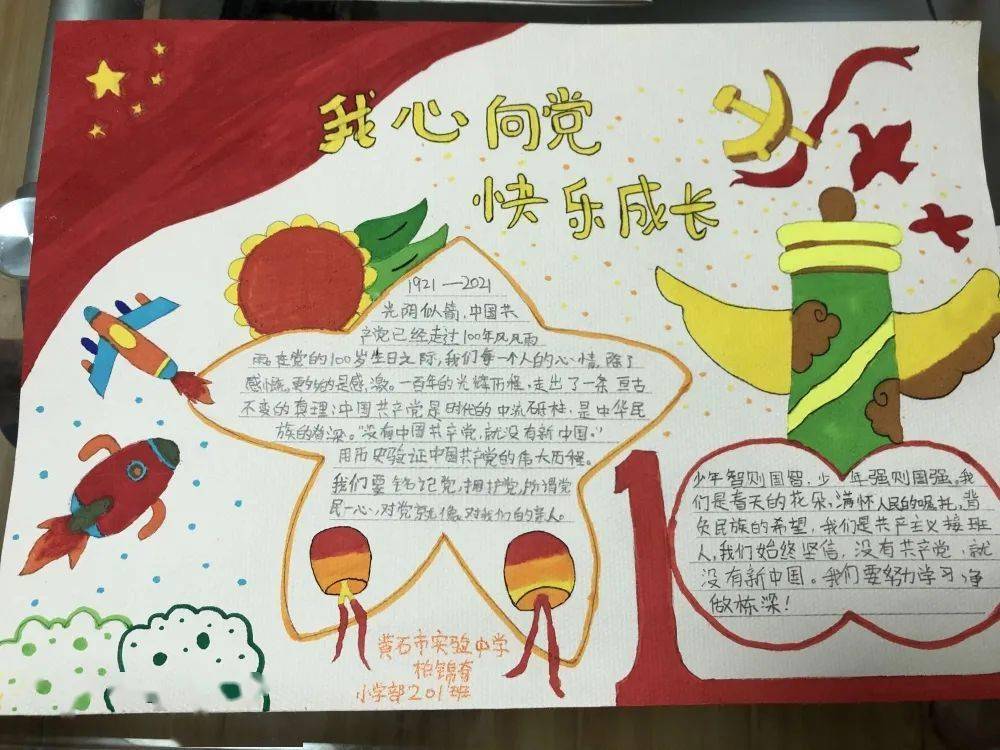 我心向党
快乐成长
1921—2021
光阴似箭,中国共
产党已经走过100年风风雨
雨。在党的100岁生日之际,我们每一个人的心情,除了
感慨,更多的是感激。一百年的光辉历程,走出了一条亘古
不变的真理:中国共产党是时代的中流砥柱,是中华民
族的脊梁。"没有中国共产党,就没有新中国。"
用历史验证中国共产党的伟大历程。
我们要铭记党,拥护党,所谓党
民一心,对党就像对我们自的亲人。
少年智则国智,少年强则国强。我
们是春天的花朵,满怀人民的嘱托,背
负民族的希望,我们是共产主义接班
人,我们始终坚信,没有共产党,就
没有新中国。我们要努力学习,争
做栋梁!
黄石市实验中学
柏锦
小学部201班